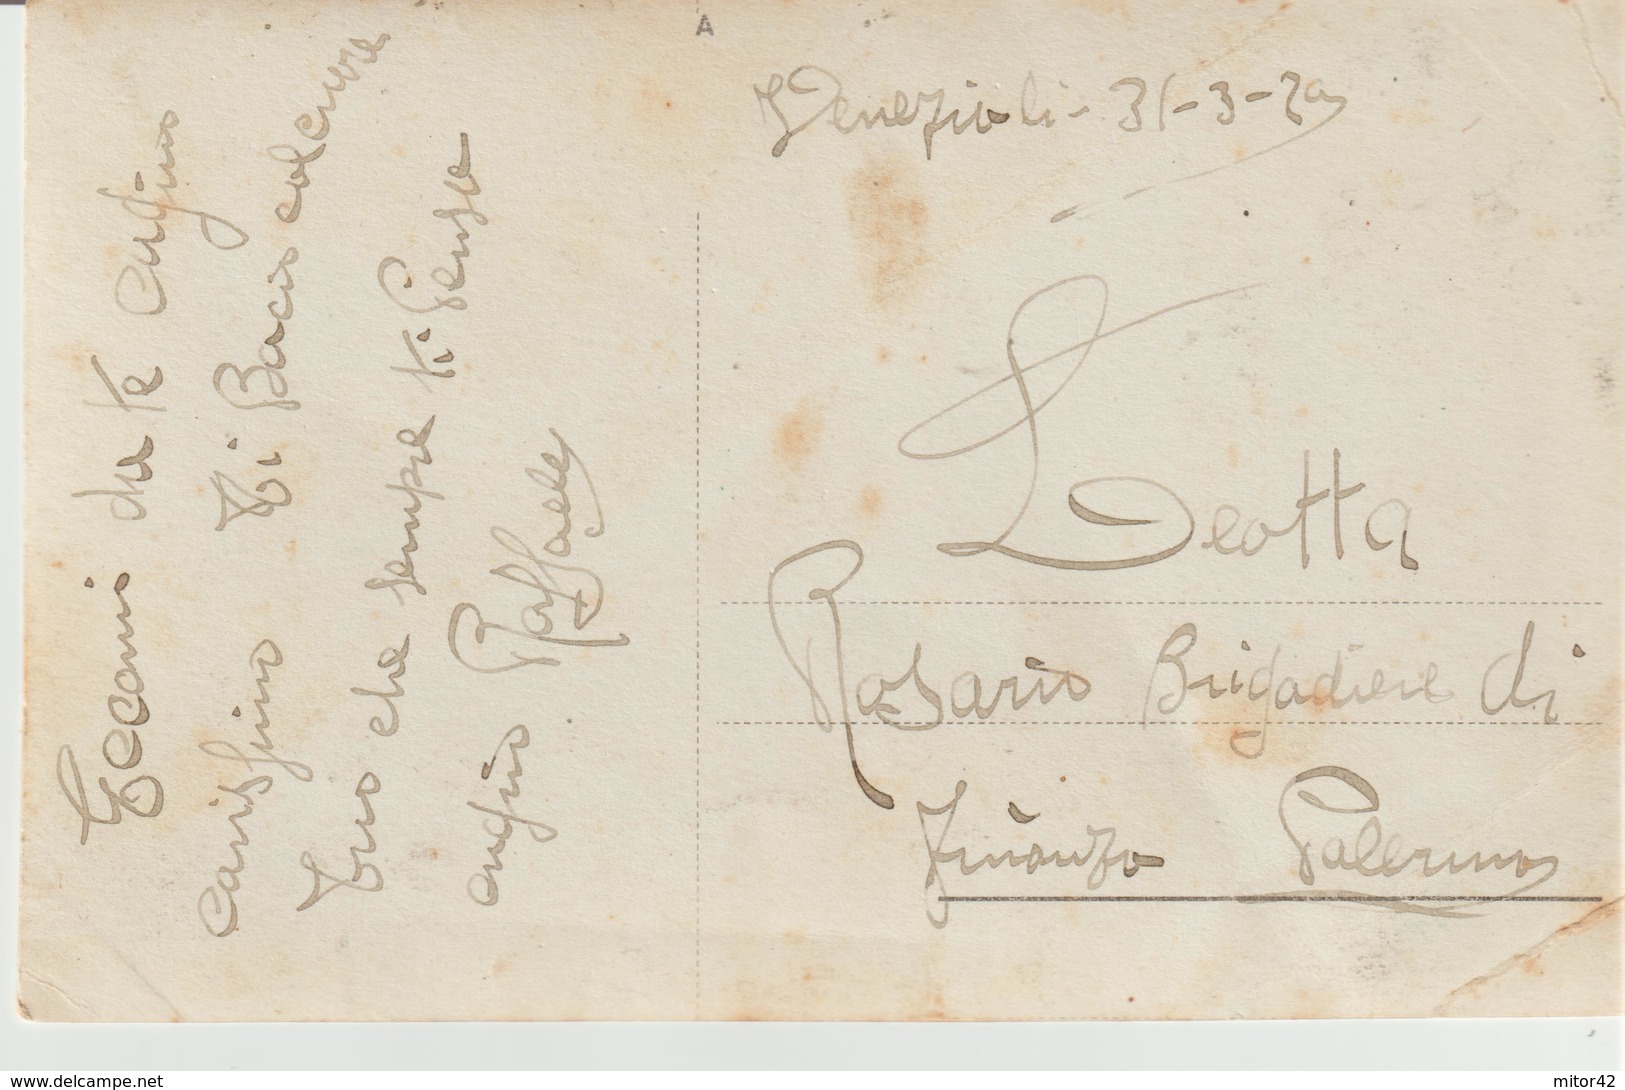 A
Venezia li - 31-3-29
Leotta
Rosario Brigadiere di
Finanza Palermo
Eccomi da te cugino
carissimo Ti Bacio al cuore
Tuo che sempre ti Pensa
cugino Raffaele
www.delcampe.net
mitor42